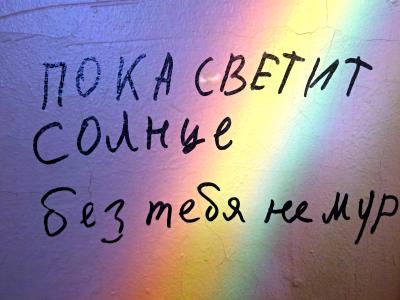 ПОКА СВЕТИТ
СОЛНЦЕ
без тебя не мур